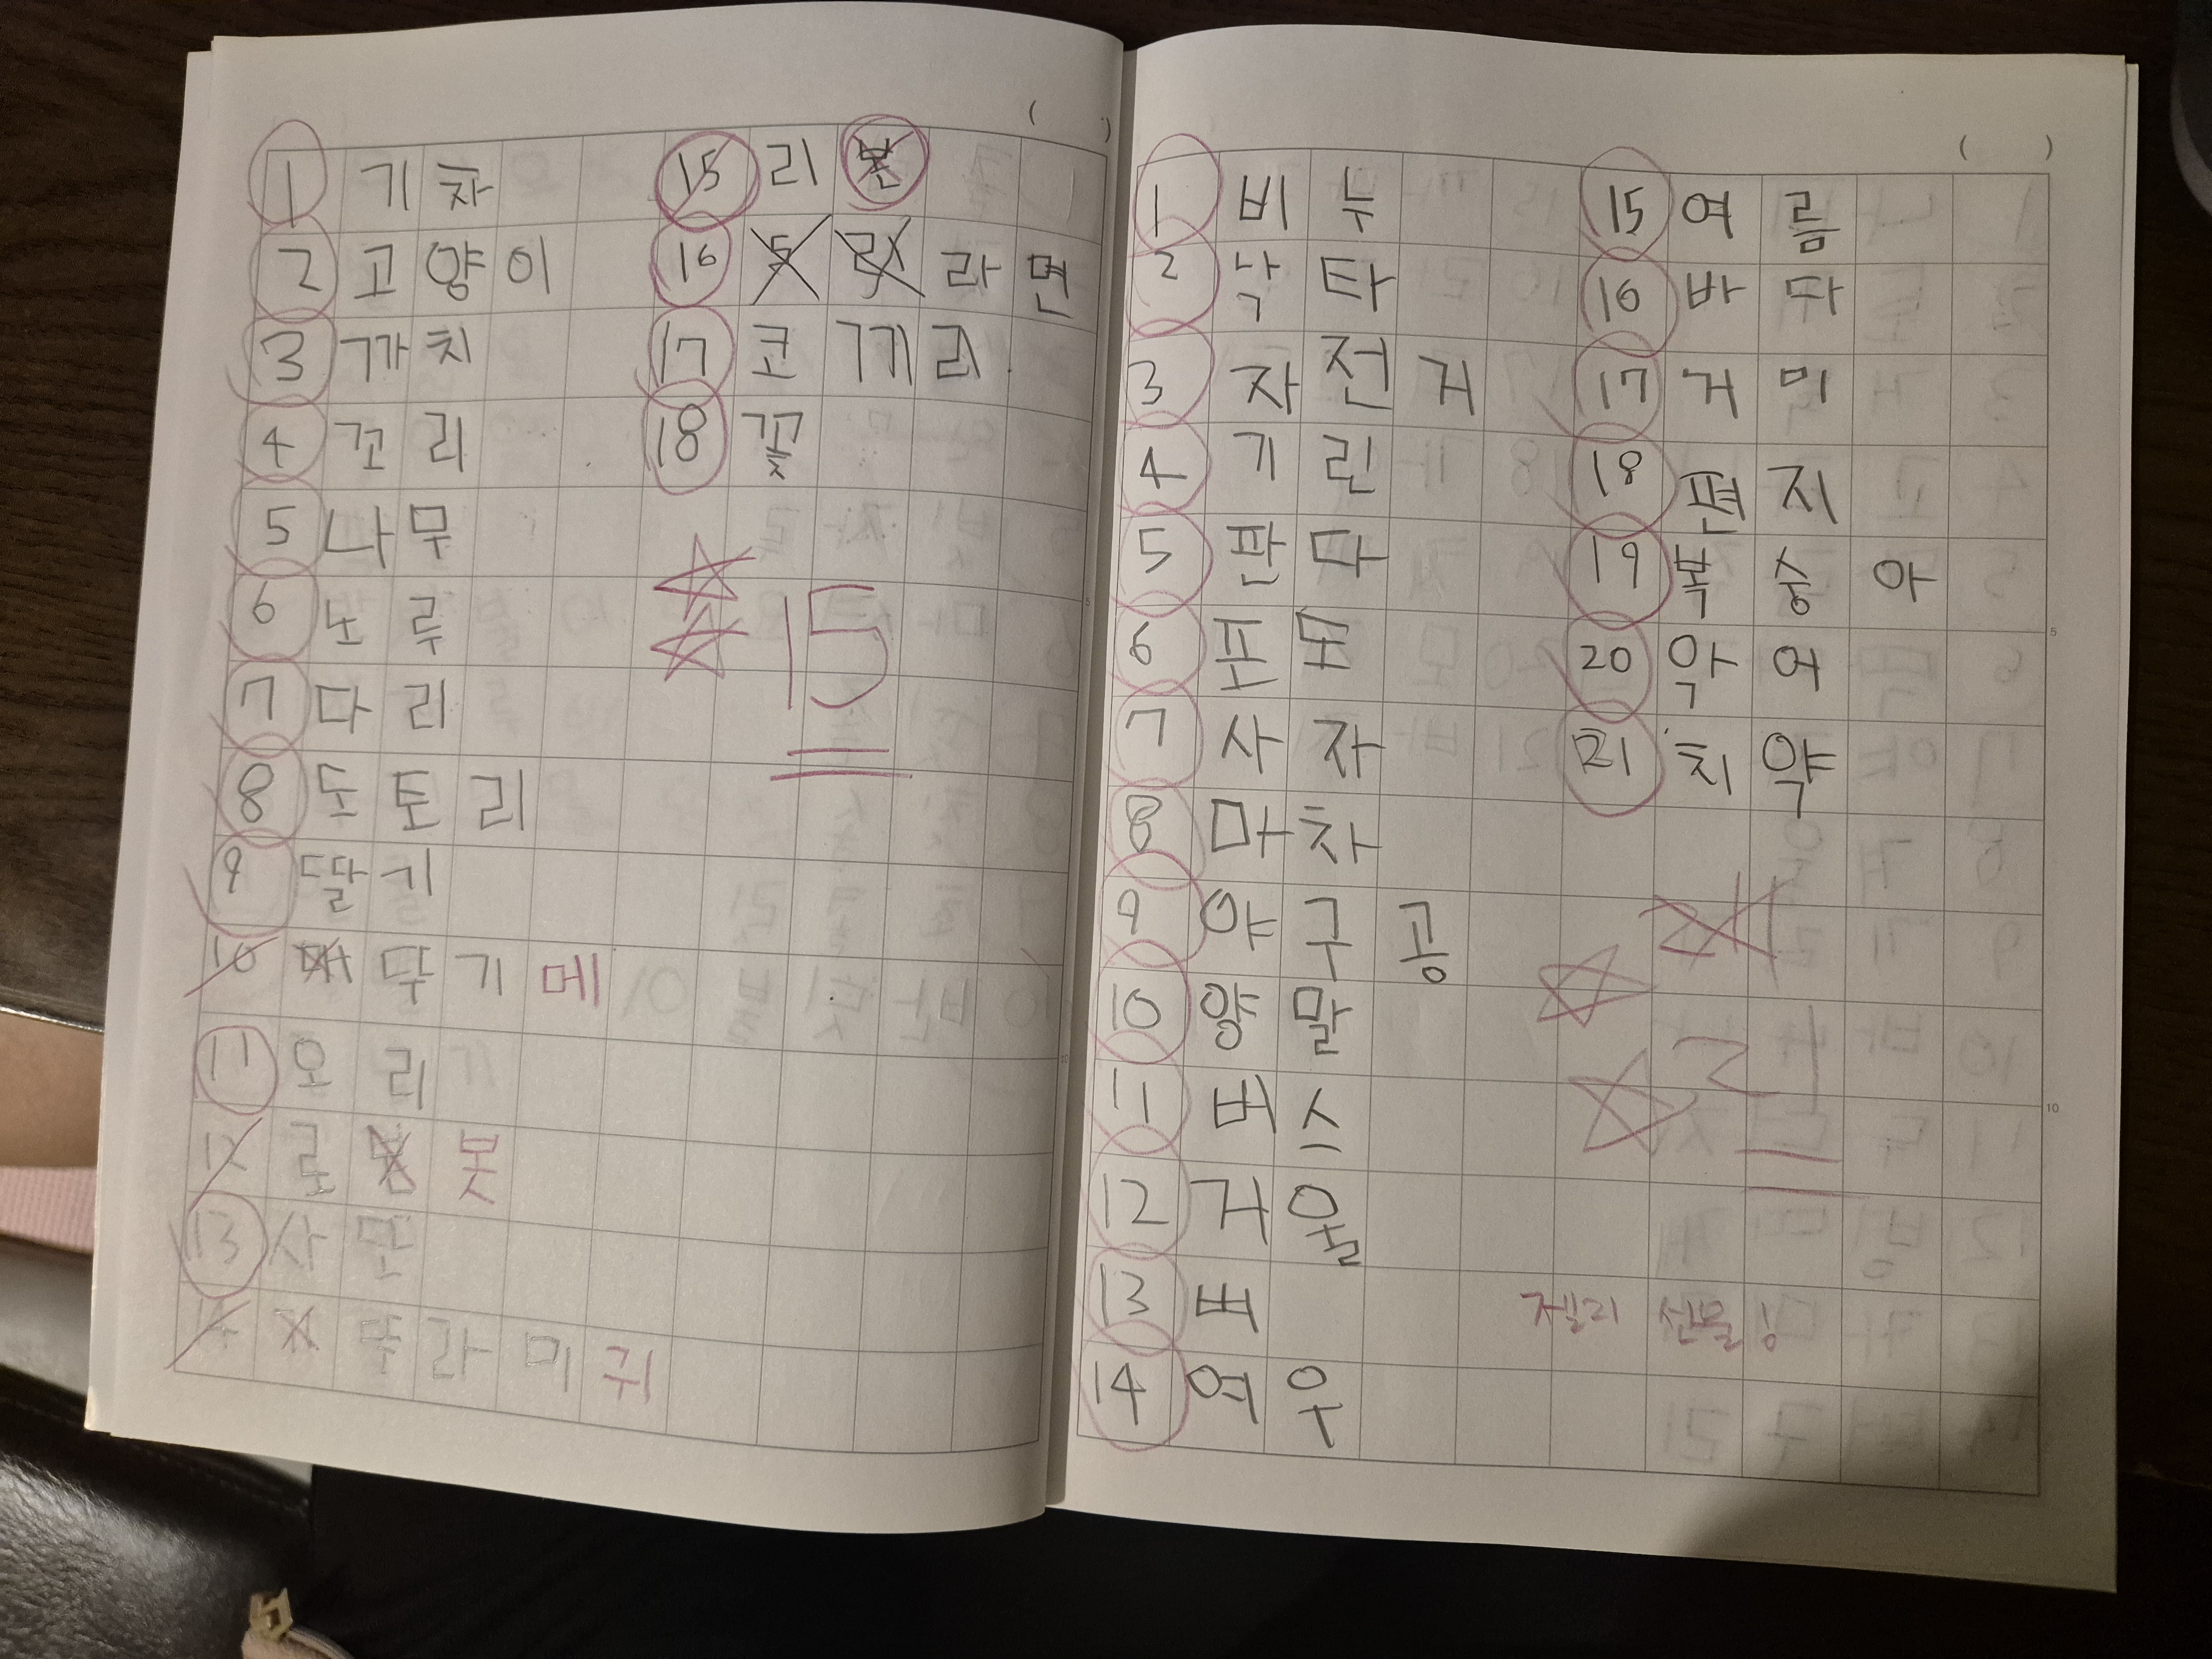 ( )
1 기차
2 고양이
3 까치
4 꼬리
5 나무
6 노루
7 다리
8 도토리
9 딸기
10 뚜기 메
11 오리
12 로 봇
13 사
14 뚜라미 귀
15 리
16 라면
17 코끼리
18 꽃
15
( )
1 비누
2 낙타
3 자전거
4 기린
5 판다
6 포도
7 사자
8 마차
9 야구공
10 양말
11 버스
12 거울
13 벼
14 여우
15 여름
16 바다
17 거미
18 편지
19 복숭아
20 악어
21 치약
21
젤리 선물!
5
10